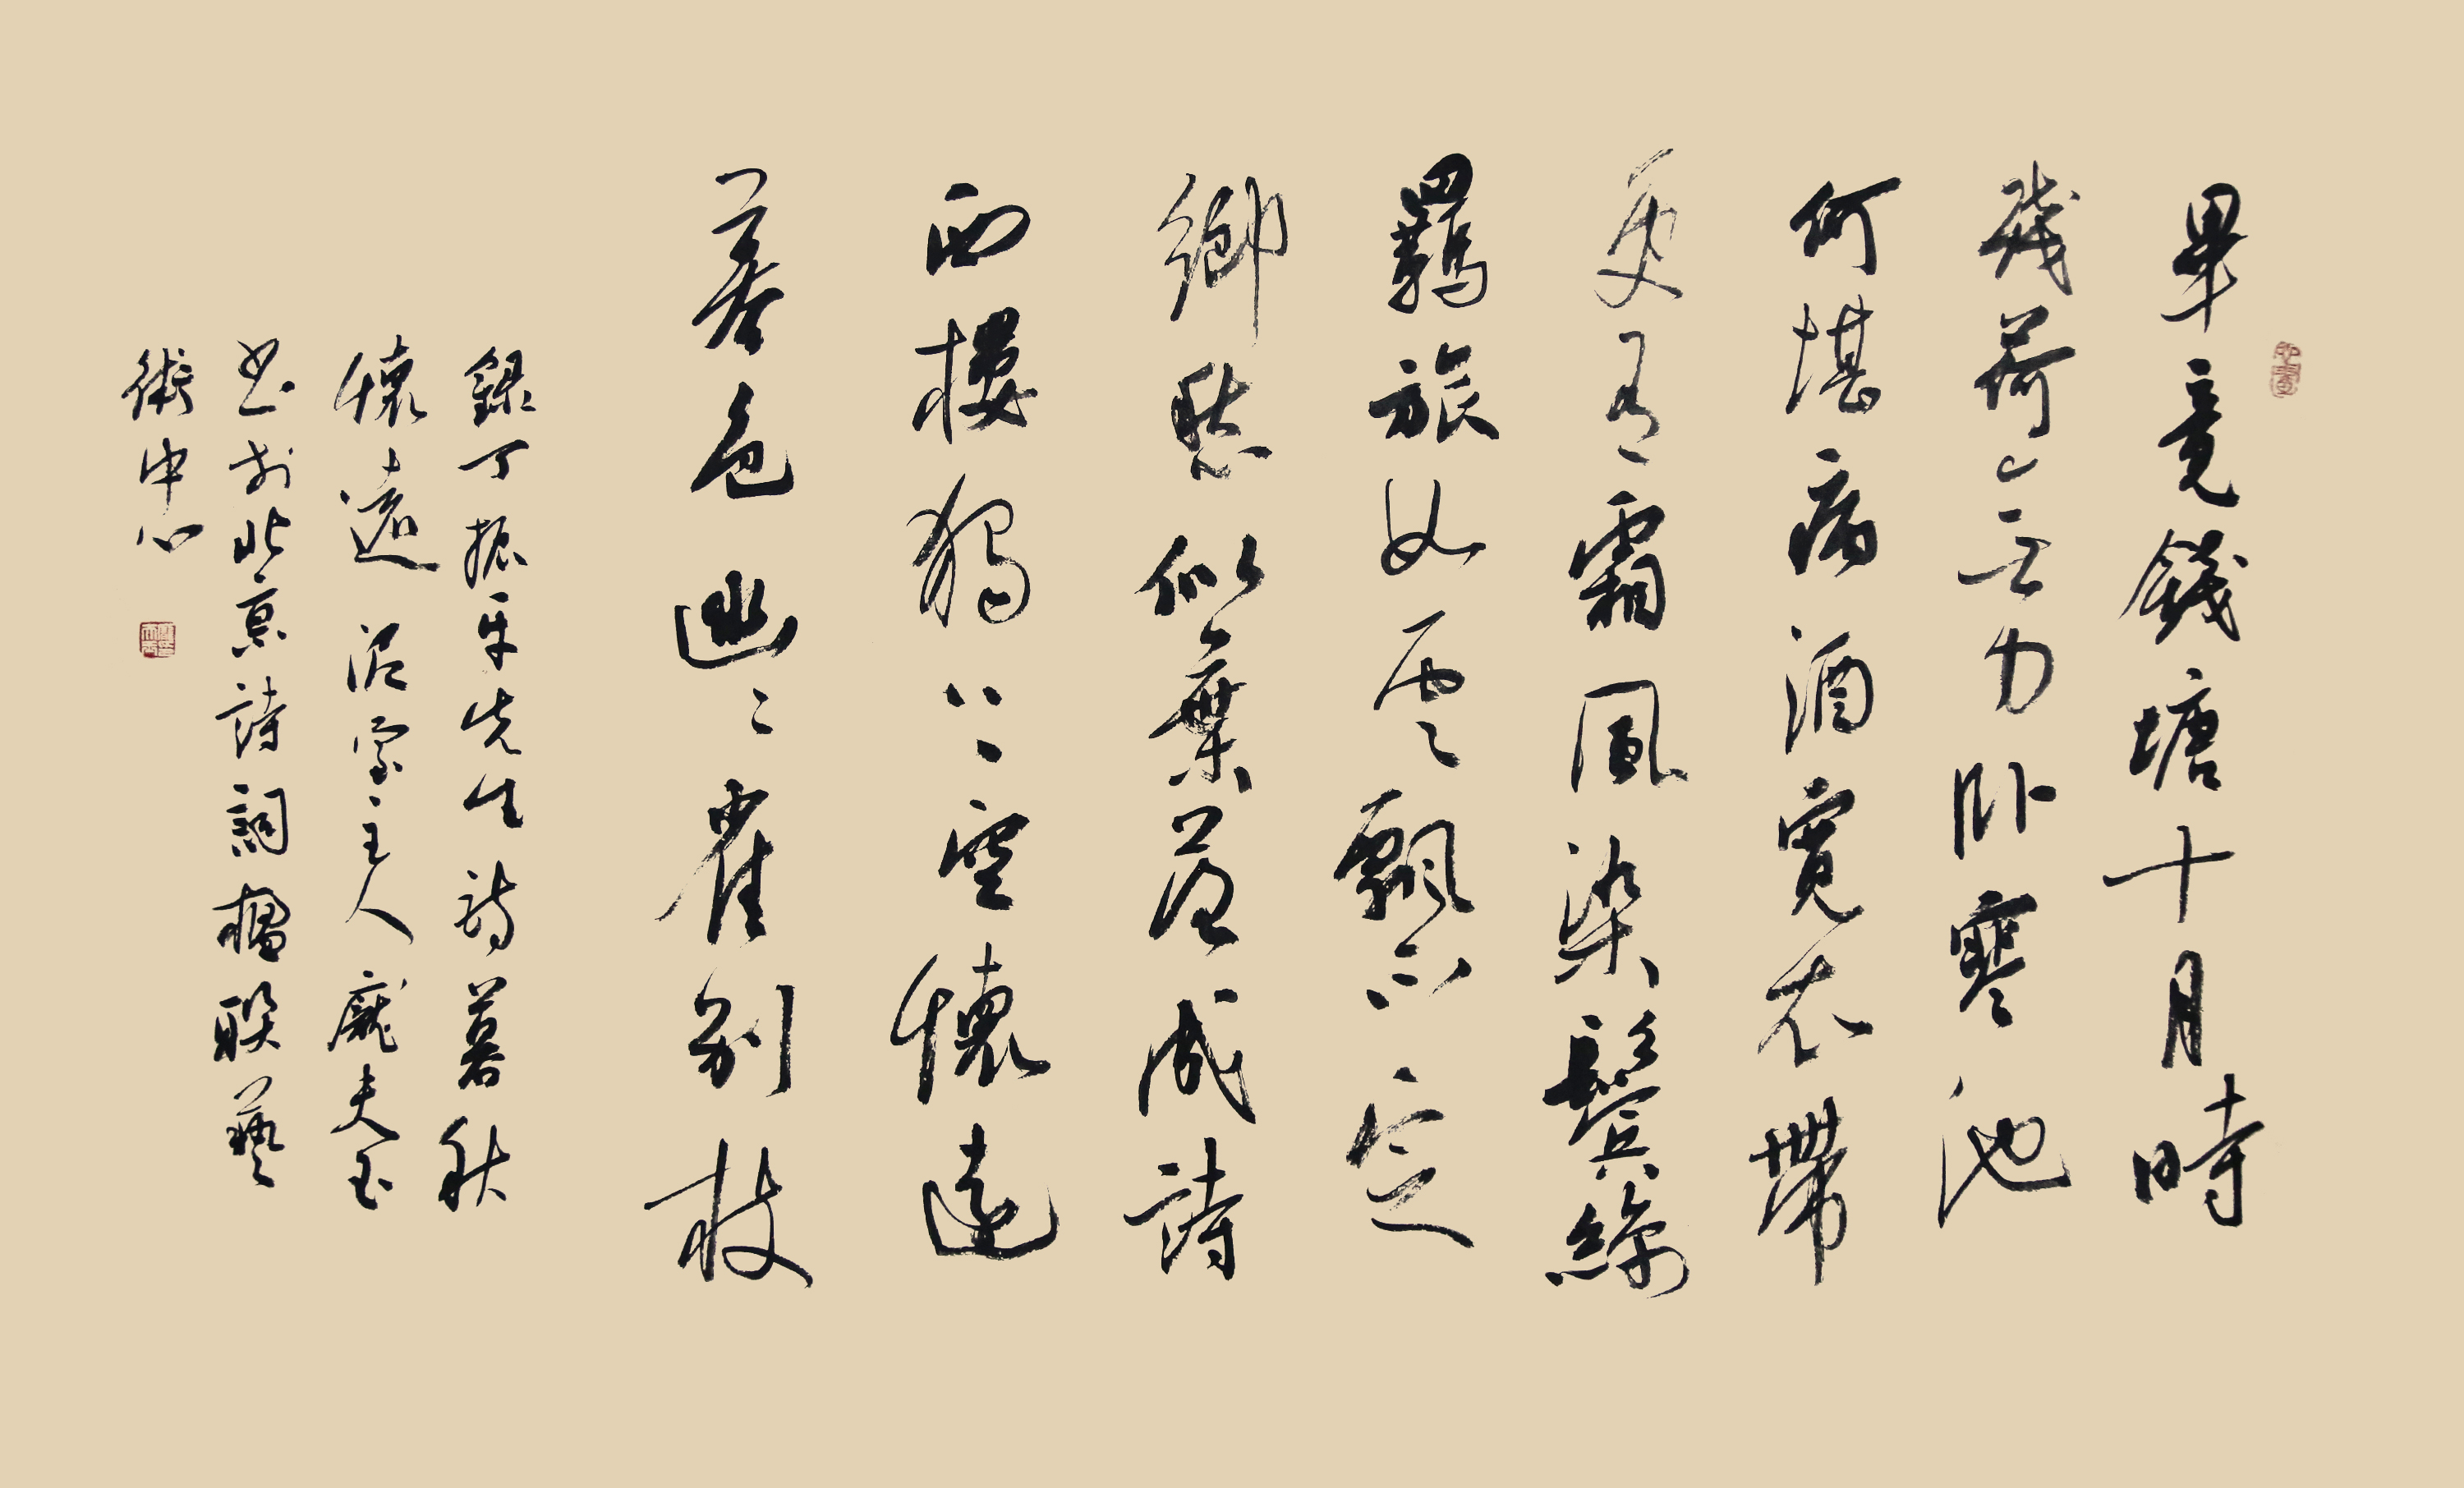 畢竟錢塘十月時
殘荷無力卧寒池
何堪病酒寬衣帶
更有霜風染鬢絲
羈旅如雲飄不定
鄉愁似葉落成詩
西樓獨空懷遠
暮色幽〻雀別枝
錄丁振平先生詩暮秋
懷遠 泥主人龐夫玉
書於北京詩詞楹聯藝
術中心